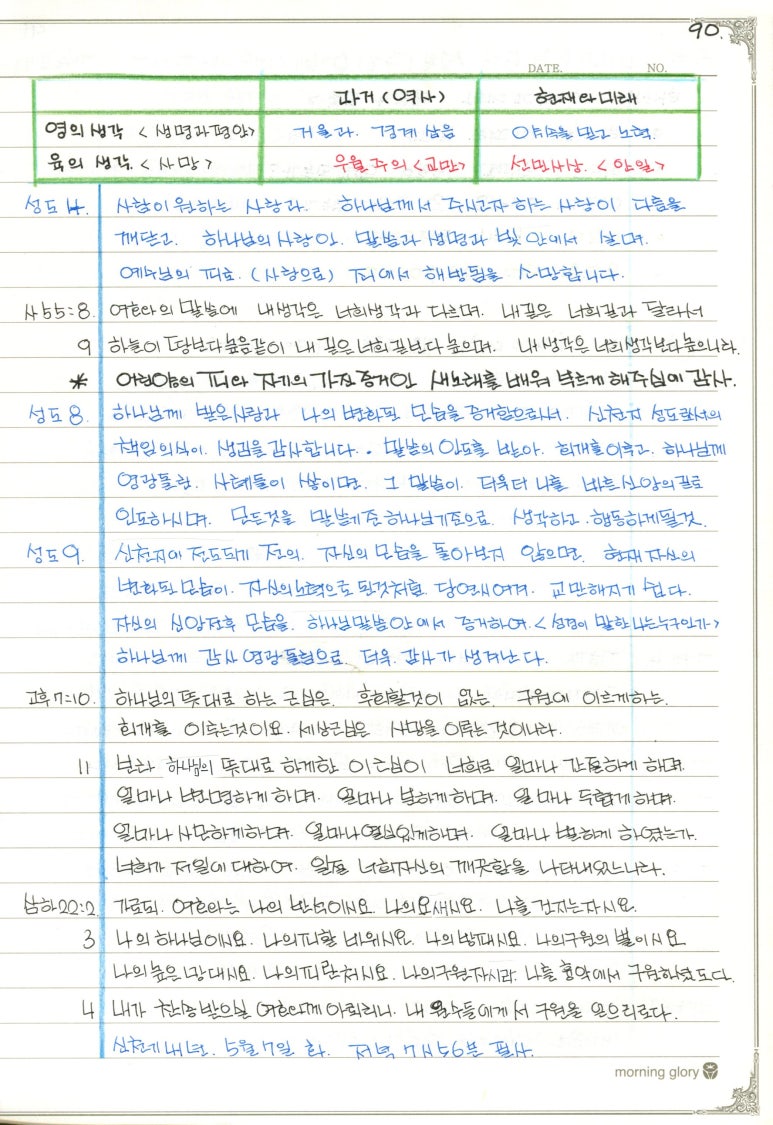 90.
DATE. NO.
과거 (역사) 현재와 미래
영의 생각 <생명과 평안> 거울과. 경계 삼음 약속을 믿고 노력.
육의 생각. <사망> 우월주의 <교만> 선민사상. <안일>
성도 4. 사람이 원하는 사랑과. 하나님께서 주시고자 하는 사랑이 다름을
깨닫고. 하나님의 사랑안. 말씀과 생명과 빛 안에서 살며.
예수님의 피로. (사랑으로) 죄에서 해방됨을 소망합니다.
사55:8. 여호와의 말씀에 내생각은 너희생각과 다르며. 내길은 너희길과 달라서
9 하늘이 땅보다 높음같이 내 길은 너희길보다 높으며. 내 생각은 너희생각보다 높으니라.
* 어린양의 피와 자기의 가진 증거인 새노래를 배워 부르게 해주심에 감사.
성도8. 하나님께 받은사랑과 나의 변화된 모습을 증거함으로서. 신천지 성도로서의
책임의식이. 생김을 감사합니다. 말씀의 인도를 받아. 회개를 이루고. 하나님께
영광돌린. 사례들이 쌓이면. 그 말씀이. 더욱더 나를 바른신앙의길로
인도하시며. 모든것을 말씀기준 하나님기준으로. 생각하고. 행동하게될것.
성도9. 신천지에 전도되기 전의. 자신의 모습을 돌아보지 않으면. 현재 자신의
변화된 모습이. 자신의 노력으로 된것처럼 당연시여겨. 교만해지기 쉽다.
자신의 신앙전후 모습을. 하나님말씀안에서 증거하여. <성경이 말한 나는 누구인가>
하나님께 감사 영광돌림으로. 더욱. 감사가 생겨난다.
고후7:10. 하나님의 뜻대로 하는 근심은. 후회할것이 없는. 구원에 이르게하는.
회개를 이루는것이요. 세상근심은 사망을 이루는 것이니라.
11 보라 하나님의 뜻대로 하게한 이 근심이 너희로 얼마나 간절하게 하며.
얼마나 변명하게 하며. 얼마나 분하게 하며. 얼마나 두렵게 하며.
얼마나 사모하게하며. 얼마나 열심있게하며. 얼마나 벌하게 하였는가.
너희가 저일에 대하여. 일절 너희자신의 깨끗함을 나타내었느니라.
삼하22:2. 가로되. 여호와는 나의 반석이시요. 나의요새시요. 나를 건지는자시요.
3 나의 하나님이시요. 나의피할 바위시요. 나의방패시요. 나의구원의 뿔이시요.
나의높은 망대시요. 나의피란처시요. 나의구원자시라. 나를 흉악에서 구원하셨도다.
4 내가 찬송받으실 여호와께 아뢰리니. 내 원수들에게서 구원을 얻으리로다.
신천기 년. 5월 7일 화. 저녁 7시56분 필사.
morning glory